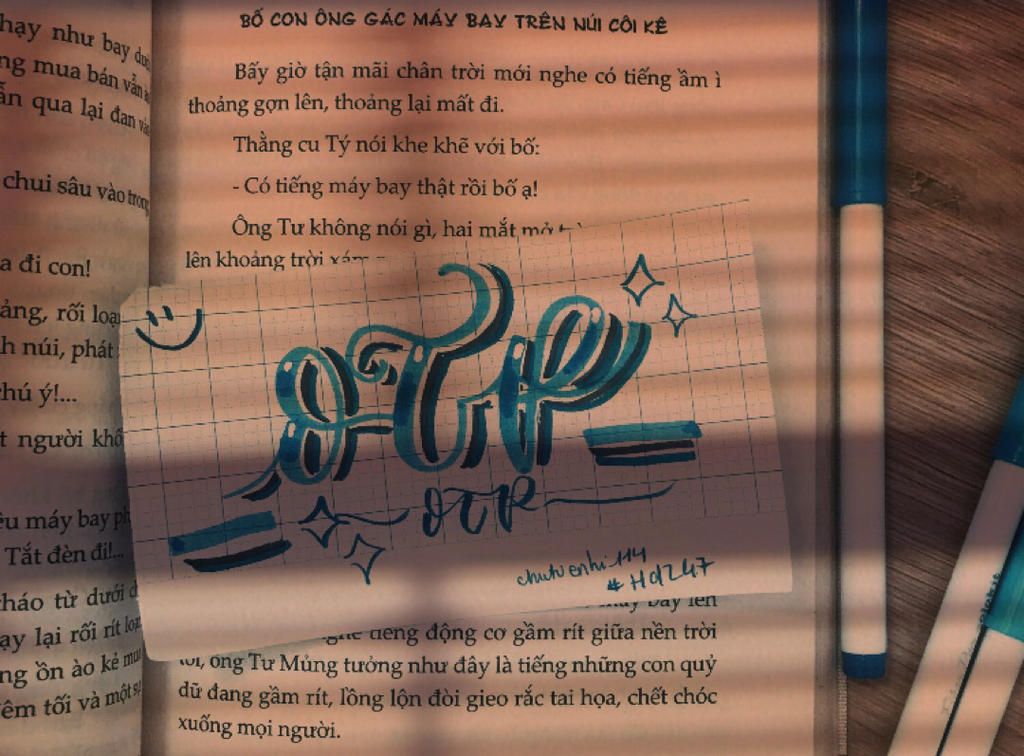 hạy như bay dưới
ng mua bán vẫn
ẫn qua lại đan
chui sâu vào trong
a đi con!
ảng, rối loạ
h núi, phát
hú ý!...
t người khổ
ều máy bay ph
Tắt đèn đi!...
háo từ dưới
ạy lại rối rít loạ
ng ồn ào kẻ mu
êm tối và một
BỐ CON ÔNG GÁC MÁY BAY TRÊN NÚI CÔI KÊ
Bấy giờ tận mãi chân trời mới nghe có tiếng ầm ì
thoảng gợn lên, thoảng lại mất đi.
Thằng cu Tý nói khe khẽ với bố:
- Có tiếng máy bay thật rồi bố ạ!
Ông Tư không nói gì, hai mắt mở
lên khoảng trời xám
OTP
OTP
chutuenhi.114
#Hd247
máy bay lên
nghe tiếng động cơ gầm rít giữa nền trời
tối, ông Tư Mủng tưởng như đây là tiếng những con quỷ
dữ đang gầm rít, lồng lộn đòi gieo rắc tai họa, chết chóc
xuống mọi người.